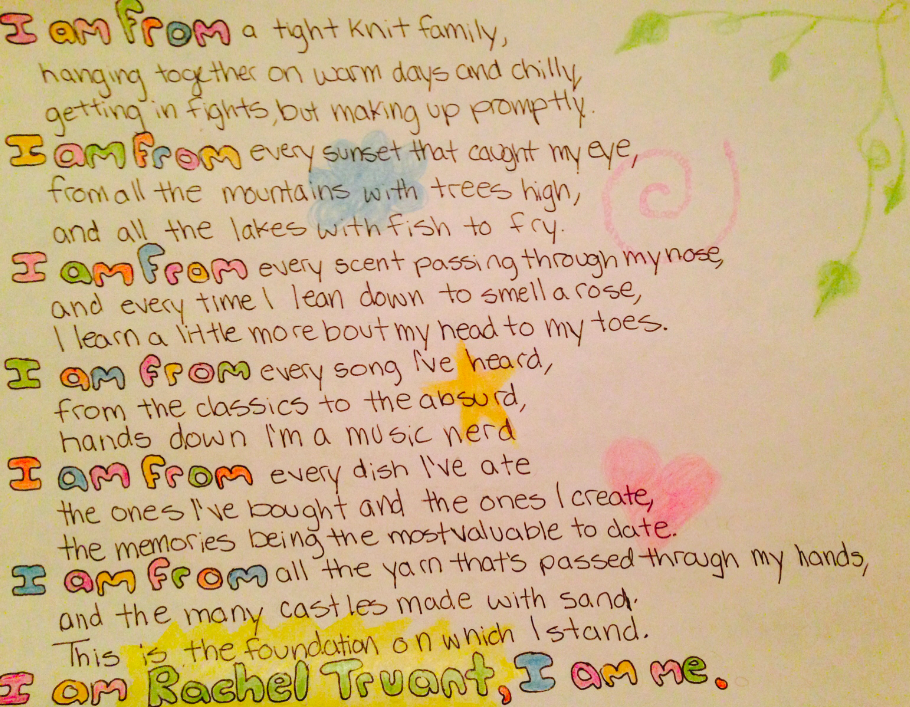 I am from a tight knit family,
hanging together on warm days and chilly,
getting in fights, but making up promptly.
I am from every sunset that caught my eye,
from all the mountains with trees high,
and all the lakes with fish to fry.
I am from every scent passing through my nose,
and every time I lean down to smell a rose,
I learn a little more bout my head to my toes.
I am from every song I've heard,
from the classics to the absurd,
hands down I'm a music nerd
I am from every dish I've ate
the ones I've bought and the ones I create,
the memories being the most valuable to date.
I am from all the yarn that's passed through my hands,
and the many castles made with sand.
This is the foundation on which I stand.
I am Rachel Truant, I am me.